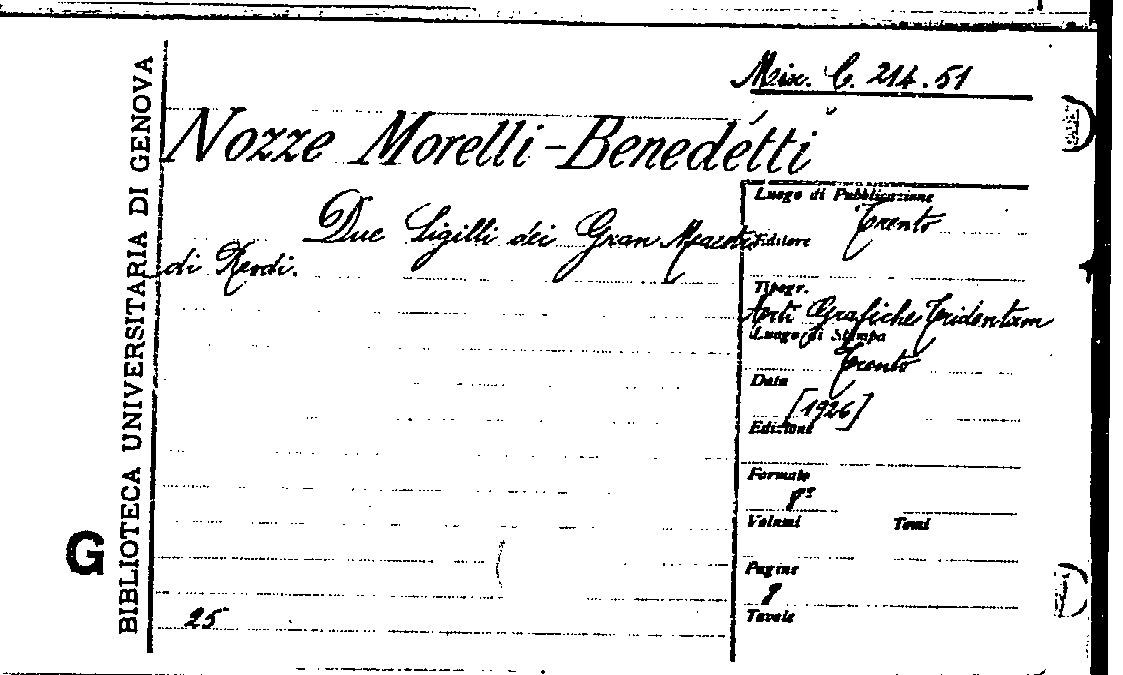 Misc. C. 214.51
Nozze Morelli-Benedetti
Due Sigilli dei Gran Maestri
di Rodi.
Luogo di Pubblicazione
Trento
Editore
Tipogr.
Arti Grafiche Tridentum
Luogo di Stampa
Trento
Data
[1926]
Edizione
Formato
8°
Volumi Tomi
Pagine
8
Tavole
25
BIBLIOTECA UNIVERSITARIA DI GENOVA
G